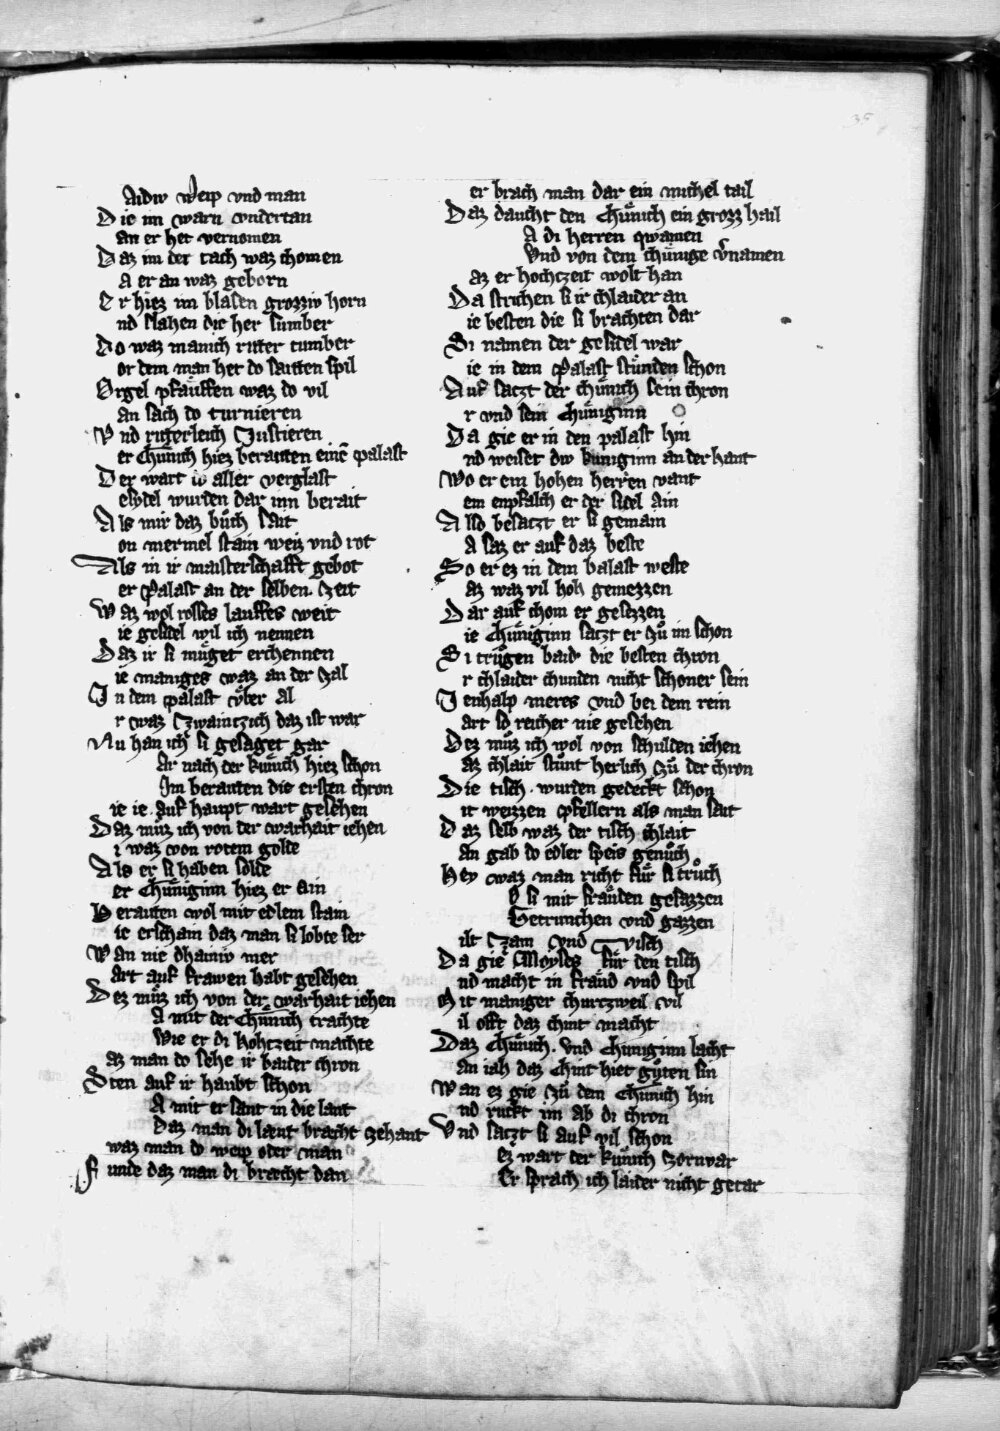 35
Aidiv Weip vnd man
Die im warn vndertan
an er het vernomen
Daz im der tach waz chomen
A er an waz geborn
Er hiez im blasen grozziv horn
nd slahen die her sumber
Do waz manich ritter tumber
or dem man het do saitten spil
Orgel pfäuffen waz do vil
an sach do turnieren
Vnd ritterleich Justieren
er Chünich hiez beraitten einē palast
Der wart in aller verglast
esydel wurden dar inn berait
Als mir daz bůch sait
on mermel stain weiz vnd rot
Als in ir maisterschafft gebot
er Palast an der selben zeit
Waz wol rosses lauffes weit
ie gesidel wil ich nennen
Daz ir si müget erchennen
ie maniges waz an der zal
In dem palast vber al
r waz zwaintzich daz ist war
Nu han ich si gesaget gar
Ar nach der künich hiez schon
Im beraiten die ersten chron
ie ie auf haupt wart gesehen
Daz můz ich von der warhait iehen
i waz von rotem golde
Als er si haben solde
er Chüniginn hiez er ain
Beraiten wol mit edlem stain
ie erschain daz man si lobte ser
Wan nie dhainiv mer
art auf frawen habt gesehen
Dez můz ich von der warhait iehen
A mit der Chünich trachte
Wie er di hohtzeit machte
az man do sehe ir baider chron
Sten auf ir haubt schon
A mit er sant in die lant
Daz man di laeut bracht zehant
waz man do weip oder man
Funde daz man di bracht dan
er brach man dar ein michel tail
Daz daucht den Chünich ein grozz hail
A di herren qwamen
Vnd von dem chünige v̄namen
az er hochtzeit wolt han
Da strichen si ir chlaider an
ie besten die si brachten dar
Si namen der gesidel war
ie in dem Palast stůnden schon
Auf satzt der chünich sein chron
r vnd sein Chüniginn
Da gie er in den palast hin
nd weiset div kuniginn an der hant
Wo er ein hohen herren vant
em enpfalch er der sidel ain
Also besatzt er si gemain
A saz er auf daz beste
So er ez in dem balast weste
az waz vil hoh gemezzen
Dar auf chom er gesezzen
ie Chüniginn satzt er zů im schon
Si trůgen baid die besten chron
r chlaider chunden nicht schoner sein
Jenhalp meres vnd bei dem rein
art so reicher nie gesehen
Dez můz ich wol von schulden iehen
az chlait stůnt herlich zů der chron
Die tisch wurden gedeckt schon
it weizzen pfellern als man sait
Daz selb waz der tisch chlait
an gab do edler speis genůch
Hey waz man richt für si trůch
O si mit fräuden gesazzen
Getrunchen vnd gazzen
ilt zam vnd visch
Da gie Moyses für den tisch
nd macht in fräud vnd spil
Mit maniger churtzweil vil
il offt daz chint macht
Daz Chünich vnd Chuniginn lacht
an iah daz Chint hiet gůten sin
Wan ez gie zů dem Chünich hin
nd ruckt im ab di chron
Vnd satzt si auf vil schon
Ez wart der künich zornvar
Er sprach ich laider nicht getar